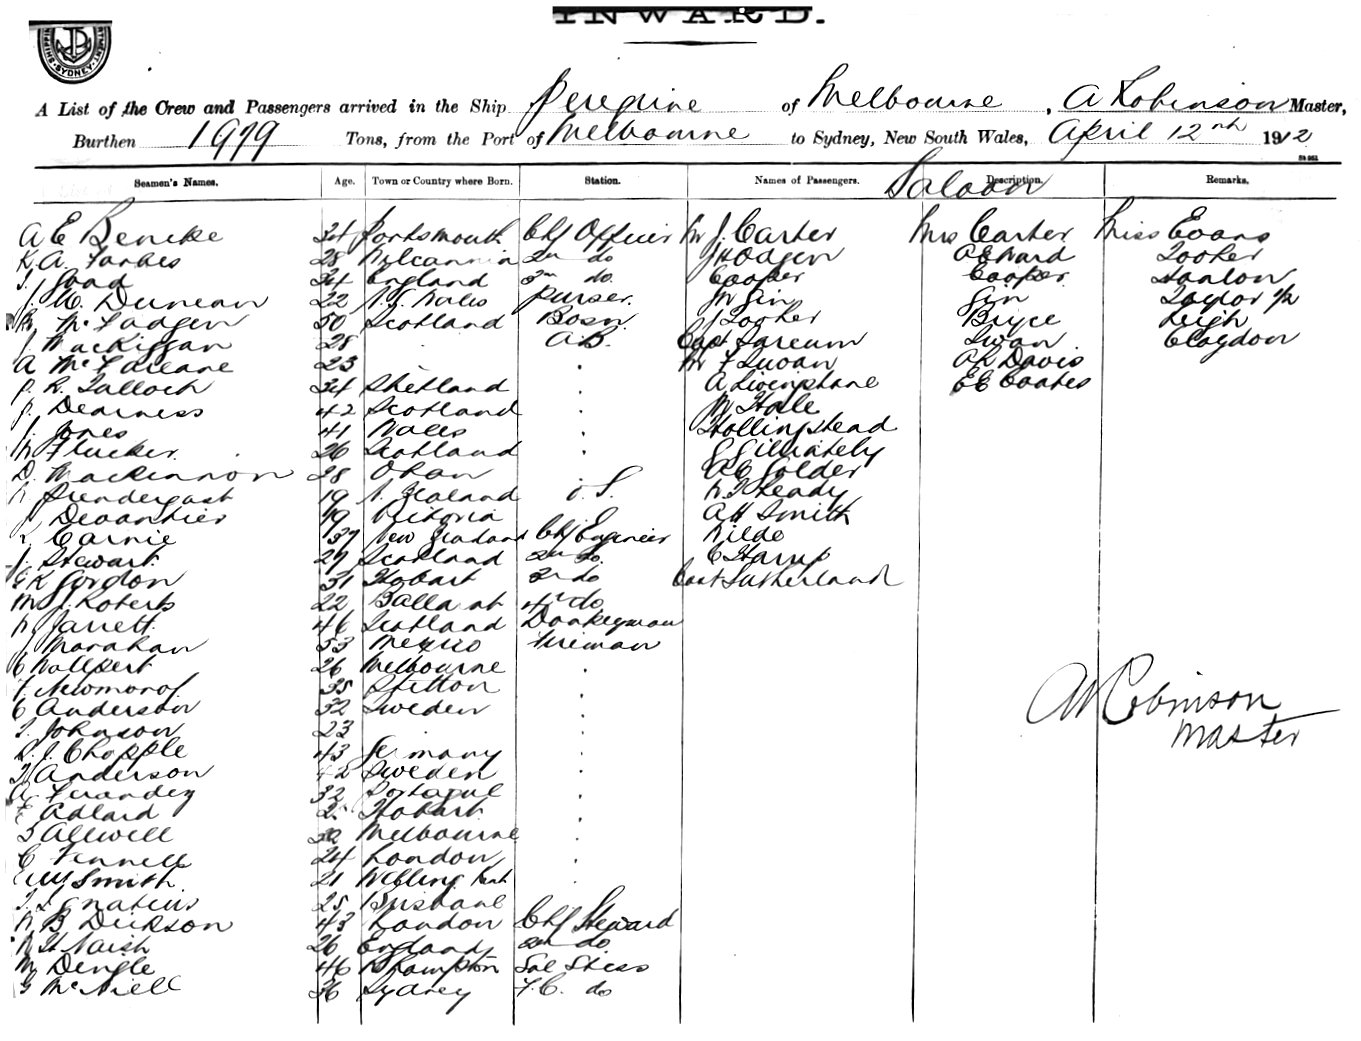 INWARD.
SYDNEY
A List of the Crew and Passengers arrived in the Ship Peregrine of Melbourne, A Robinson Master,
Burthen 1979 Tons, from the Port of Melbourne to Sydney, New South Wales, April 12th 1912
Seamen's Names. Age. Town or Country where Born. Station. Names of Passengers. Saloon Description. Remarks.
A E Bencke 34 Portsmouth Chf Officer Mr J. Carter Mrs Carter Miss Evans
K. A. Forbes 28 Wilcannia 2nd do J Hodgen A E Ward Tooker
Goad 34 England 3rd do. Cooper Cooper Hanlon
J. W. Duncan 22 N. S. Wales Purser. Gin Gin Taylor 1/2
McFadgen 50 Scotland Bosn. J Tooker Bryce Leigh
J MacKiggan 28 . A.B. Capt Larcum Swan Clogdon
A McFarlane 23 . Mr F Swan A L Davis
R. Tulloch 34 Shetland . A Livingstone E E Coates
J. Dearness 42 Scotland . W Hale
J. Jones 41 Wales . Hollingshead
W Flucker. 26 Scotland . G Gilliately
D. Mackinnon 28 Oban . A E Golder
Prendergast 19 N. Zealand O. S. Leady
J Devantier 19 Victoria A H Smith
Carnie 37 New Zealand Chf Engineer Wilde
J Stewart. 27 Scotland 2nd do. C Harrup
G K Gordon 31 Hobart 3rd do Capt Sutherland
M J. Roberts 22 Ballarat 4th do
W. Jarrett. 46 Scotland Donkeyman
J Monahan 53 Mexico Fireman
C Wallbert 26 Melbourne .
F. Newmanof 35 Stettin .
C Anderson 32 Sweden .
J. Johnson 23 . .
R. J. Chopple 43 Germany .
J Anderson 42 Sweden .
A Ferandez 32 Portugal .
E Adlard 2 Hobart. .
S Allwell 32 Melbourne .
C Fennell 24 London .
E W Smith. 21 .
J. Ignatius 25 Brisbane
W B Dickson 43 London Chf Steward
W H Naish 26 England 2nd do.
M Dengle 46 Sal Stess
G McNiell 36 Sydney F.C. do
A Robinson
Master